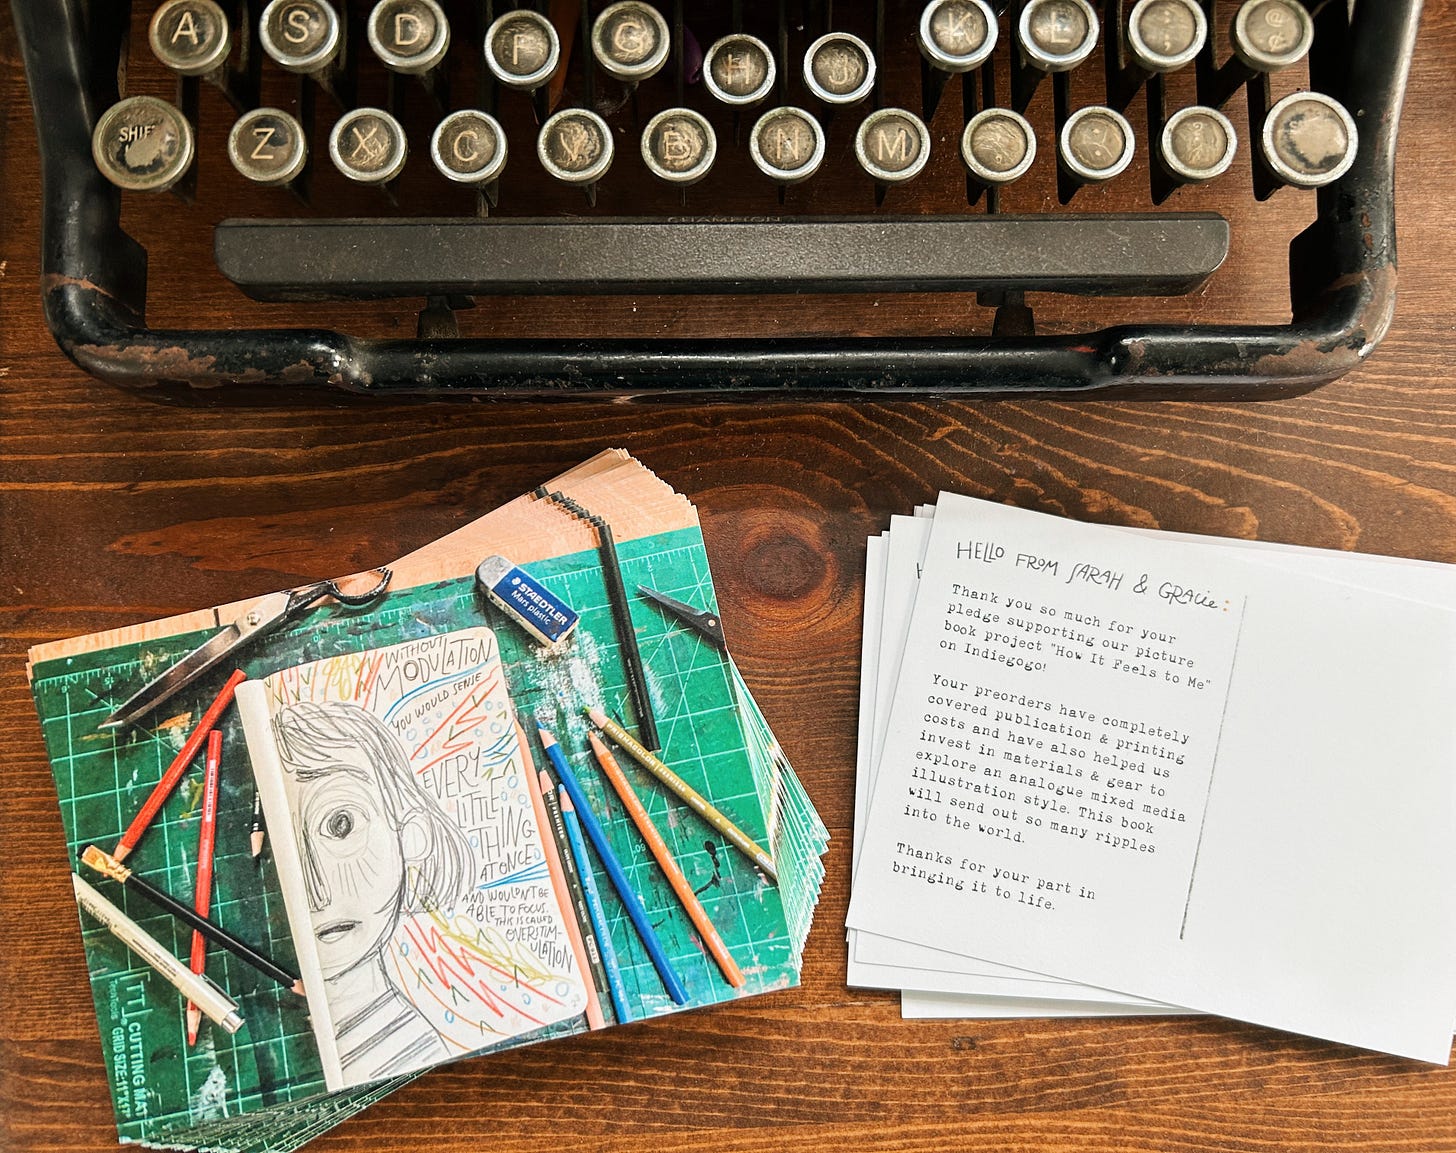 A S D F G H J K L ; @ ¢
SHIFT Z X C V B N M
CHAMPION
STAEDTLER
Mars plastic
WITHOUT
MODULATION
YOU WOULD SENSE
EVERY
LITTLE
THING
AT ONCE
AND WOULDN'T BE
ABLE TO FOCUS.
THIS IS CALLED
OVERSTIM-
ULATION
CUTTING MAT
GRID SIZE: 1"X1"
HELLO FROM SARAH & GRACIE:
Thank you so much for your
pledge supporting our picture
book project "How It Feels to Me"
on Indiegogo!
Your preorders have completely
covered publication & printing
costs and have also helped us
invest in materials & gear to
explore an analogue mixed media
illustration style. This book
will send out so many ripples
into the world.
Thanks for your part in
bringing it to life.